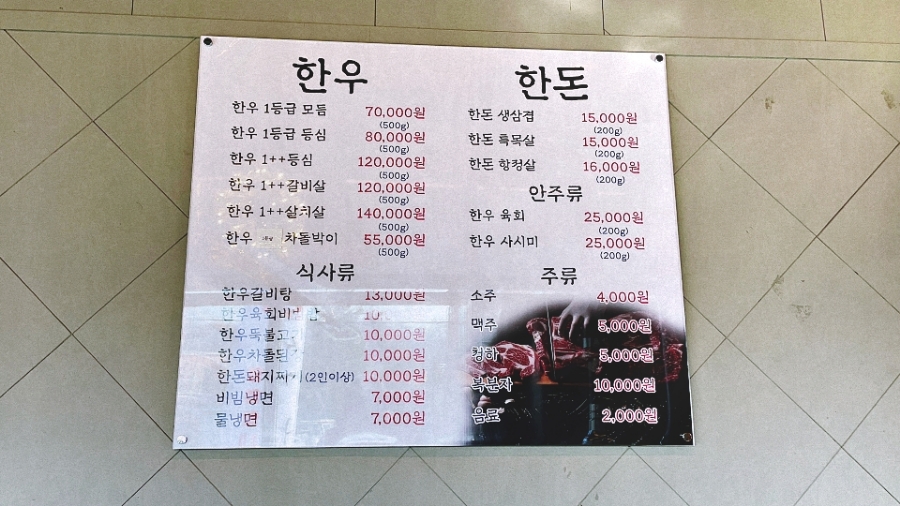 한우
한우 1등급 모듬 70,000원
(500g)
한우 1등급 등심 80,000원
(500g)
한우 1++등심 120,000원
(500g)
한우 1++갈비살 120,000원
(500g)
한우 1++살치살 140,000원
(500g)
한우 차돌박이 55,000원
(500g)
식사류
한우갈비탕 13,000원
한우육회비빔밥
한우뚝불고기 10,000원
한우차돌된 10,000원
한돈돼지찌개 (2인이상) 10,000원
비빔냉면 7,000원
물냉면 7,000원
한돈
한돈 생삼겹 15,000원
(200g)
한돈 특목살 15,000원
(200g)
한돈 항정살 16,000원
(200g)
안주류
한우 육회 25,000원
(200g)
한우 사시미 25,000원
(200g)
주류
소주 4,000원
맥주 5,000원
청하 5,000원
복분자 10,000원
음료 2,000원